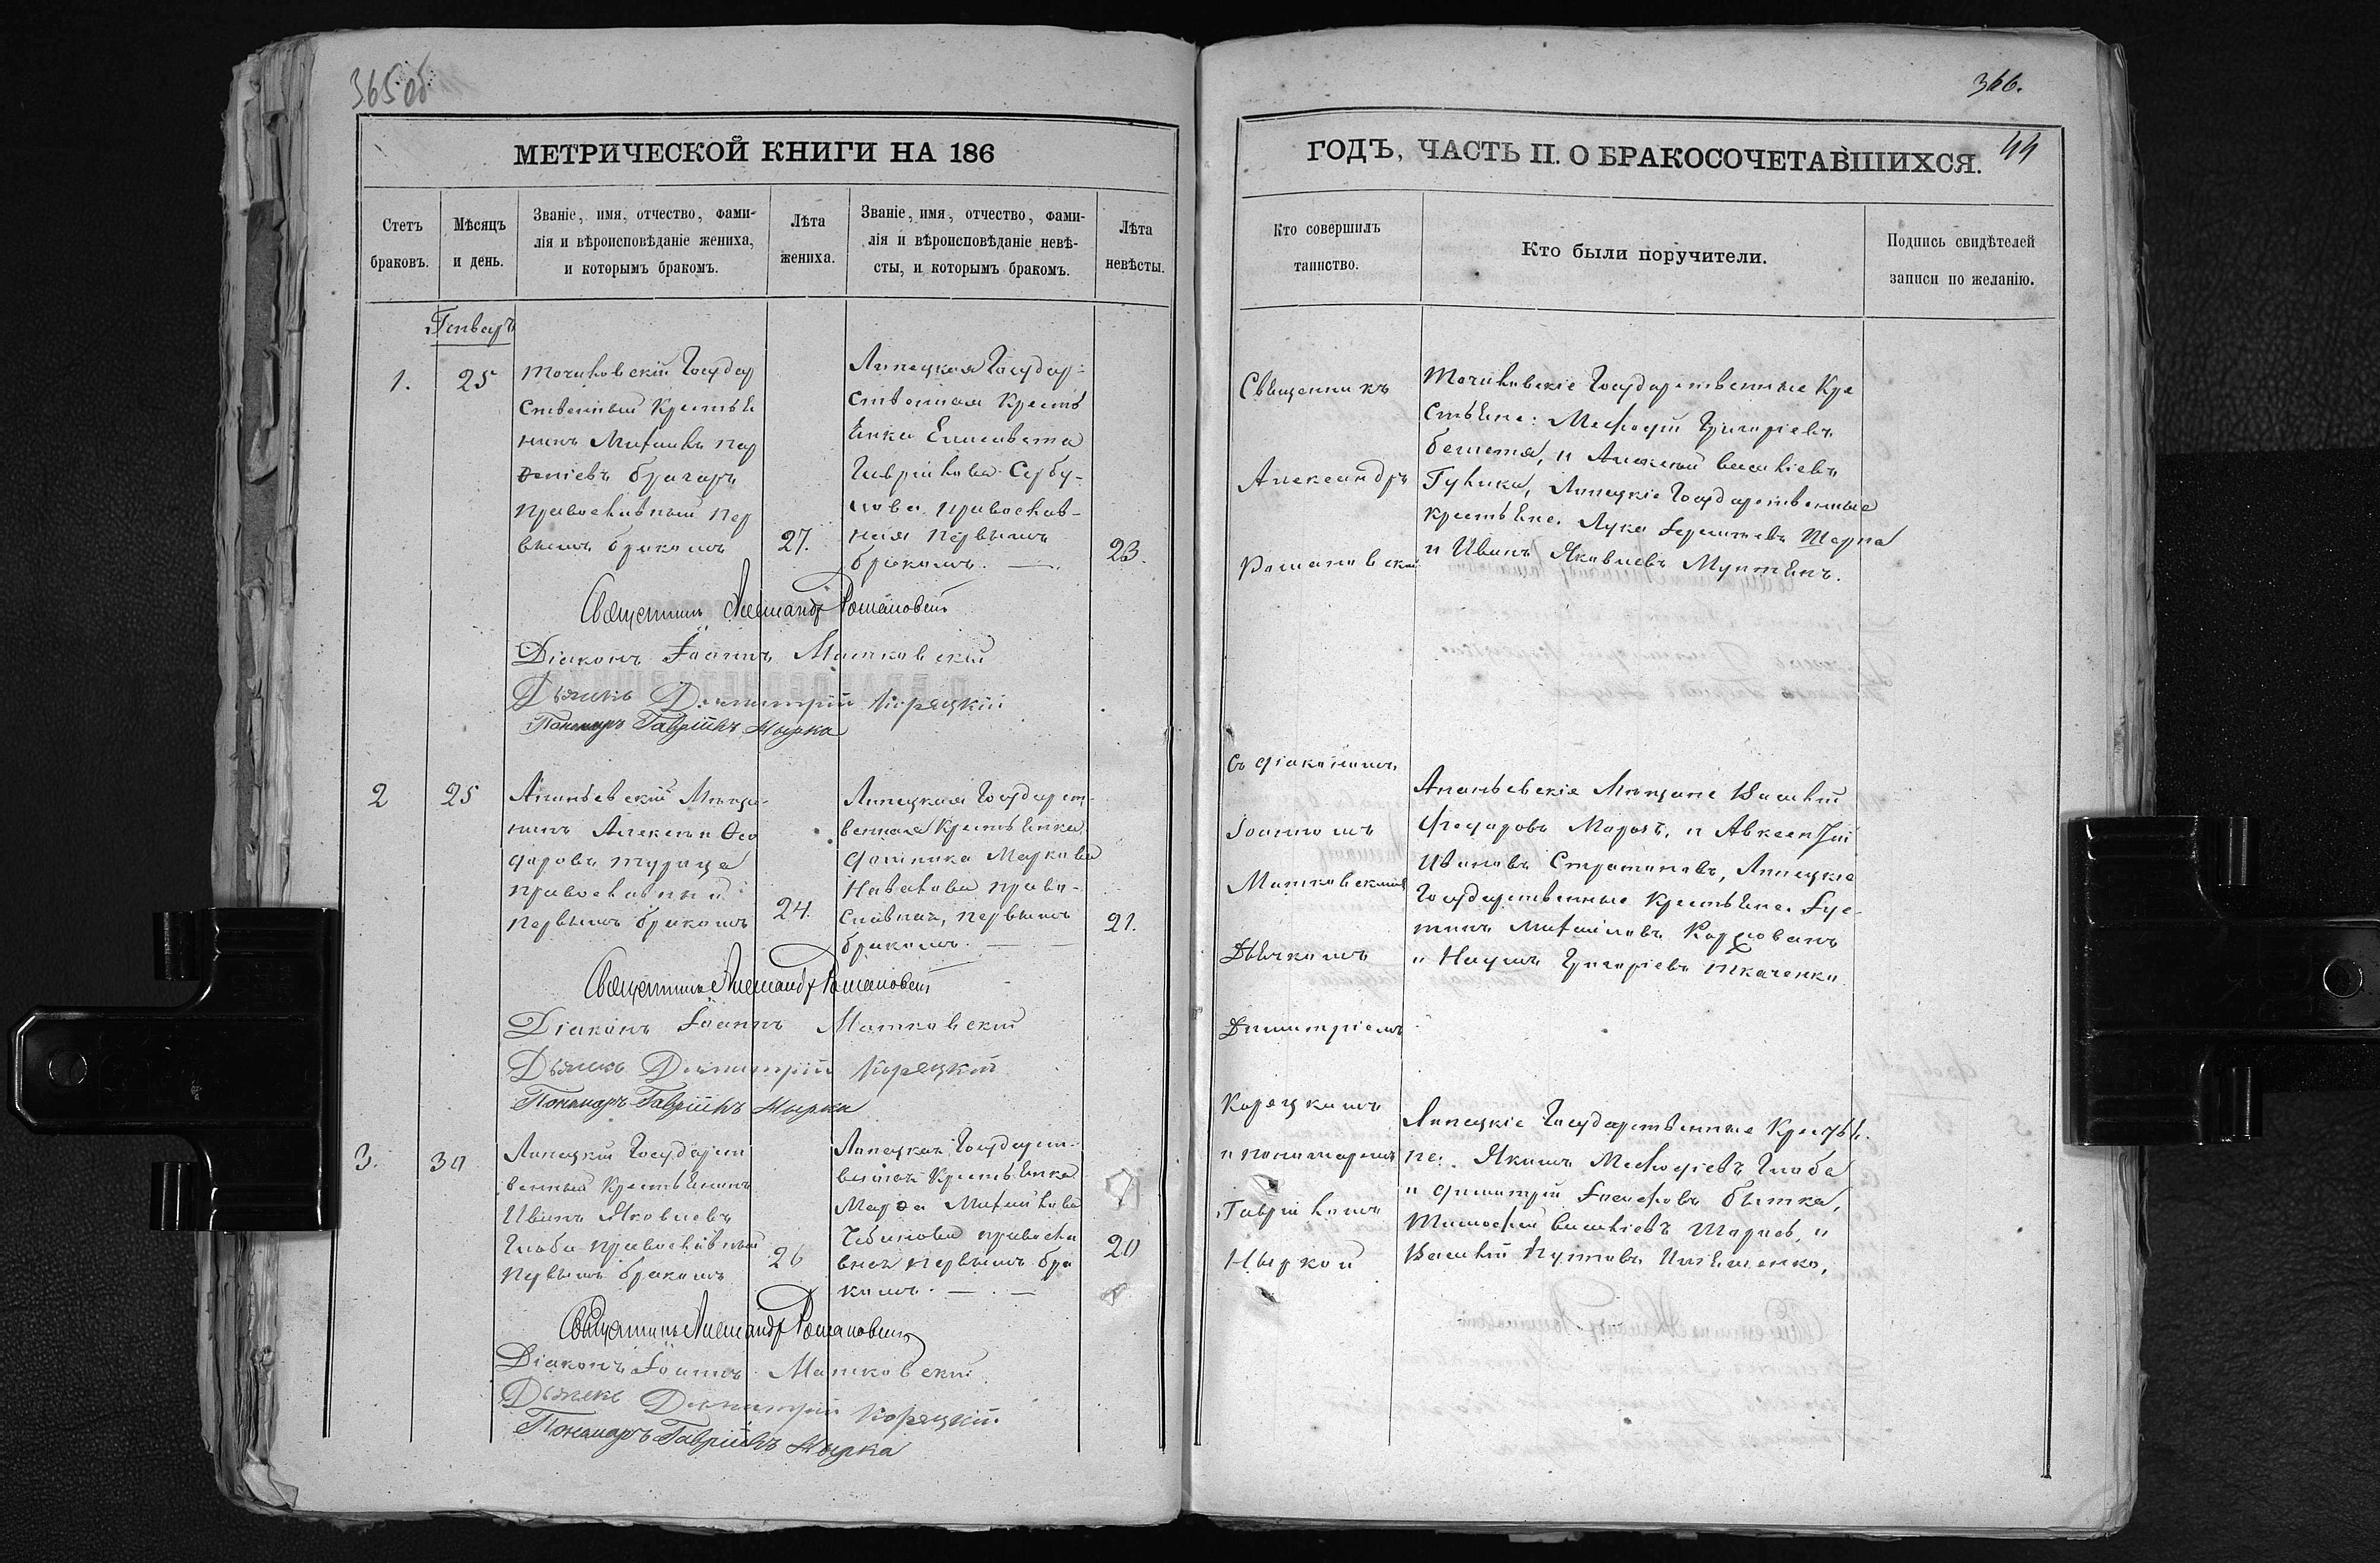 365 об
МЕТРИЧЕСКОЙ КНИГИ НА 186
Счетъ
браковъ.
Мѣсяцъ
и день.
Званіе, имя, отчество, фами-
лія и вѣроисповѣданіе жениха,
и которымъ бракомъ.
Лѣта
жениха.
Званіе, имя, отчество, фами-
лія и вѣроисповѣданіе невѣ-
сты, и которымъ бракомъ.
Лѣта
невѣсты.
Генварь
1.
25
Точиловскій Государ
ственный Крестья
нинъ Михаилъ Пар
ѳеніевъ
православный пер
вымъ бракомъ
27.
Липецкая Государ-
ственная Кресть
янка Елисавета
Гавріилова Сербу-
лова православ-
ная первымъ
бракомъ. —
23.
Священникъ Александръ Романовскій
Діаконъ Іоаннъ Матковскій
Дьячекъ Димитрій Корецкій
Пономарь Гавріилъ Нырка
2
25
Ананьевскій Мѣща-
нинъ Алексѣй Ѳео
доровъ
православный
первымъ бракомъ
24.
Липецкая Государст-
венная Крестьянка
Маркова
православная, первымъ
бракомъ. — —
21.
Священникъ Александръ Романовскій
Діаконъ Іоаннъ Матковскій
Дьячекъ Димитрій Корецкій
Пономарь Гавріилъ Нырка
3.
30
Липецкій Государст
венный Крестьянинъ
Иванъ Яковлевъ
Глоба православный
первымъ бракомъ
26
Липецкая Государст-
венная Крестьянка
Марѳа Михайлова
Чебанова правосла
вная первымъ бра
комъ. — . —
20
Священникъ Александръ Романовскій
Діаконъ Іоаннъ Матковскій
Дьячекъ Димитрій Корецкій
Пономарь Гавріилъ Нырка
366.
44
ГОДЪ, ЧАСТЬ II. О БРАКОСОЧЕТАВШИХСЯ.
Кто совершилъ
таинство.
Кто были поручители.
Подпись свидѣтелей
записи по желанію.
Священникъ
Александръ
Романовскій
Съ діакономъ
Іоанномъ
Матковскимъ
Дьячкомъ
Димитріемъ
Корецкимъ
и пономаремъ
Гавріиломъ
Ныркой
Точиловскіе Государственные Кре
стьяне: Меѳодій Григоріевъ
и Алексѣй Василіевъ
Липецкіе Государственные
крестьяне. Лука
и Иванъ Яковлевъ Мунтянъ.
Ананьевскіе Мѣщане Василій
Ѳедоровъ и Авксентій
Ивановъ Липецкіе
Государственные Крестьяне.
Михайловъ
и Наумъ Григоріевъ Ткаченко
Липецкіе Государственные Крестья-
не: Якимъ Меѳодіевъ Глоба
и Димитрій Іосифовъ
Тимоѳей Василіевъ и
Василій